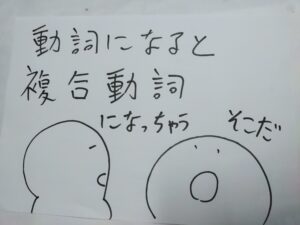 動詞になると
複合動詞
になっちゃう
そこだ